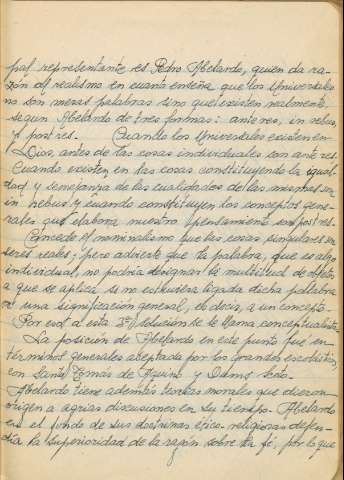 pal representante es Pedro Abelardo, quien da ra-
zón al realismo en cuanto enseña que los Universales
no son meras palabras sino que existen realmente
segun Abelardo de tres formas: ante res, in rebus
y post res. Cuando los Universales existen en
Dios, antes de las cosas individuales son ante res
Cuando existen en las cosas constituyendo la igual-
dad y semejanza de las cualidades de las mismas son
in rebus y cuando constituyen los conceptos gene-
rales que elabora nuestro pensamiento son post res.
Concede al nominalismo que las cosas singulares son
seres reales; pero advierte que la palabra, que es algo
individual, no podria designar la multitud de objetos
a que se aplica si no estuviera ligada dicha palabra
a una significación general, es decir, a un concepto.
Por eso a esta 3ª solucion se le llama conceptualista.
La posición de Abelardo en este punto fue en
terminos generales aceptada por los grandes escolasticos,
con Santo Tomás de Aquino y Duns Scoto.
Abelardo tiene además teorias morales que dieron
origen a agrias discusiones en su tiempo. Abelardo
en el fondo de sus doctrinas etico-religiosas defen-
dia la superioridad de la razón sobre la fé, por lo que